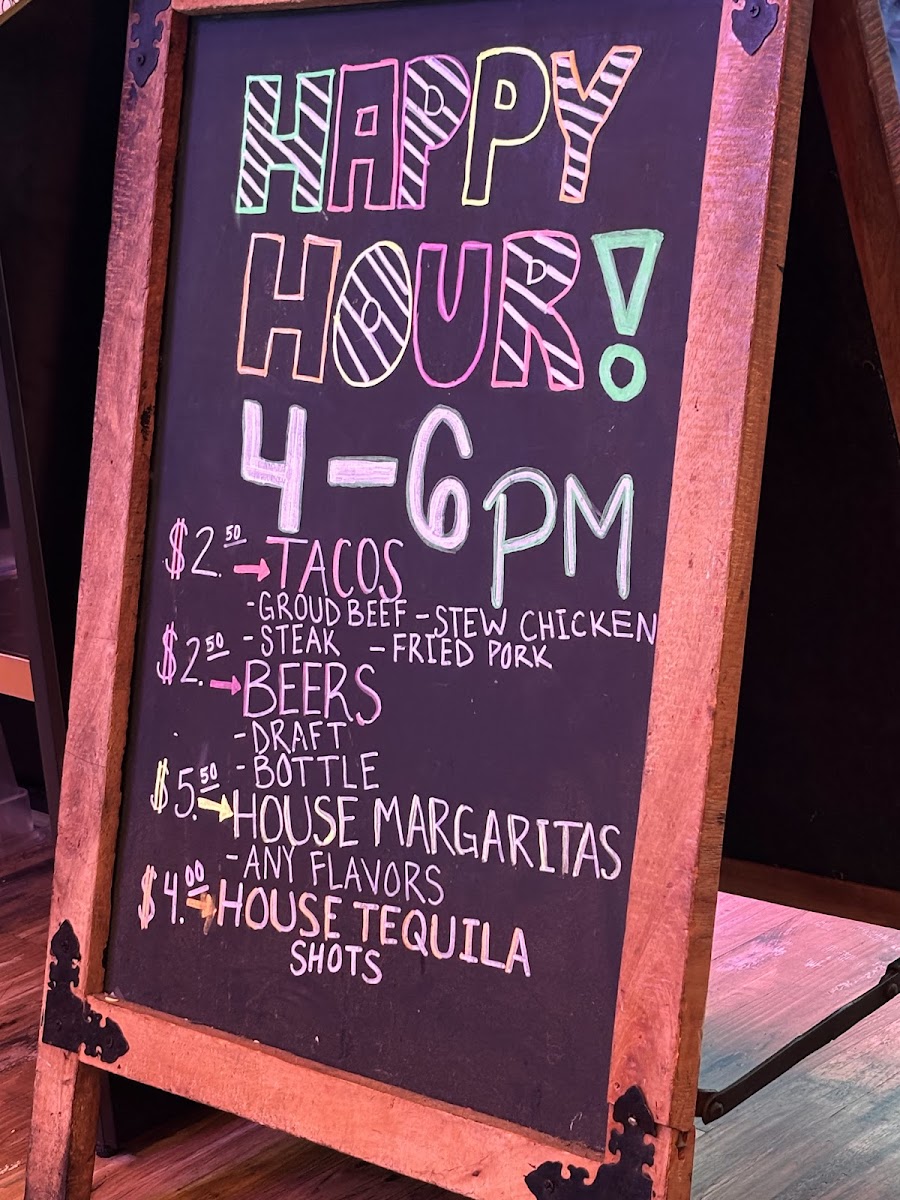 HAPPY
HOUR!
4-6PM
$2.50 → TACOS
-GROUD BEEF -STEW CHICKEN
-STEAK -FRIED PORK
$2.50 → BEERS
-DRAFT
-BOTTLE
$5.50 → HOUSE MARGARITAS
-ANY FLAVORS
$4.00 → HOUSE TEQUILA
SHOTS